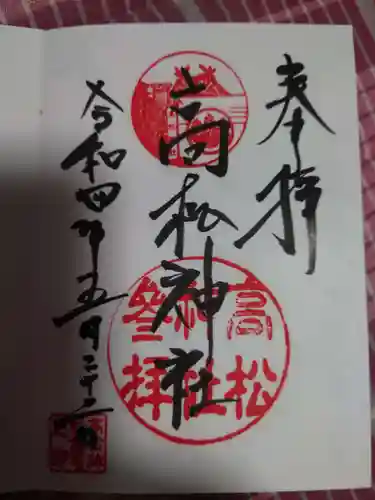 奉拝
高松神社
令和四年五月二十二日
高松
神社
参拝